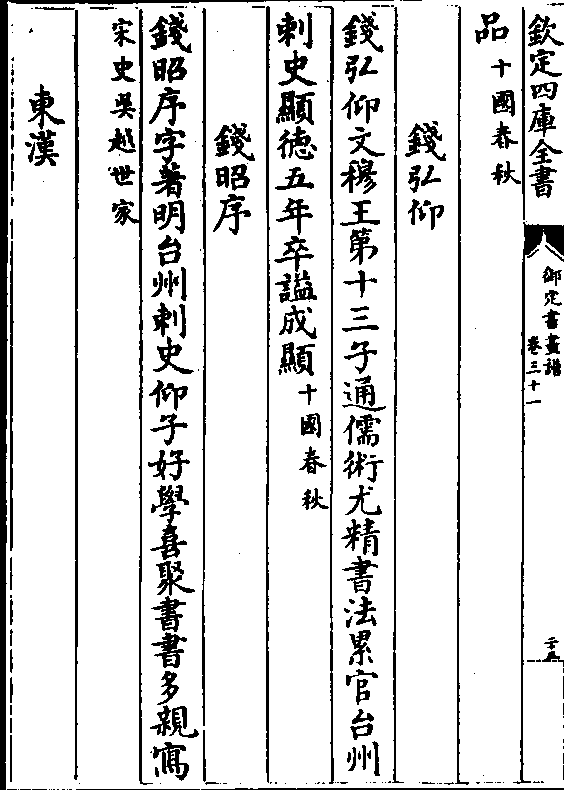 欽定四庫全書
御定書畫譜
卷三十一
二十五
品十國春秋
錢弘仰
錢弘仰文穆王第十三子通儒術尤精書法累官台州
刺史顯德五年卒謚成顯十國春秋
錢昭序
錢昭序字著明台州刺史仰子好學喜聚書書多親寫
宋史吳越世家
東漢